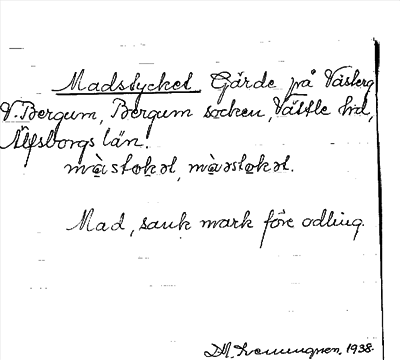 Madstycket Gärde på Västerg
V. Bergum, Bergum socken, Vättle hd,
Älfsborgs län.
mὰstokəl, mὰəstokəl.
Mad, sank mark före odling.
1938.